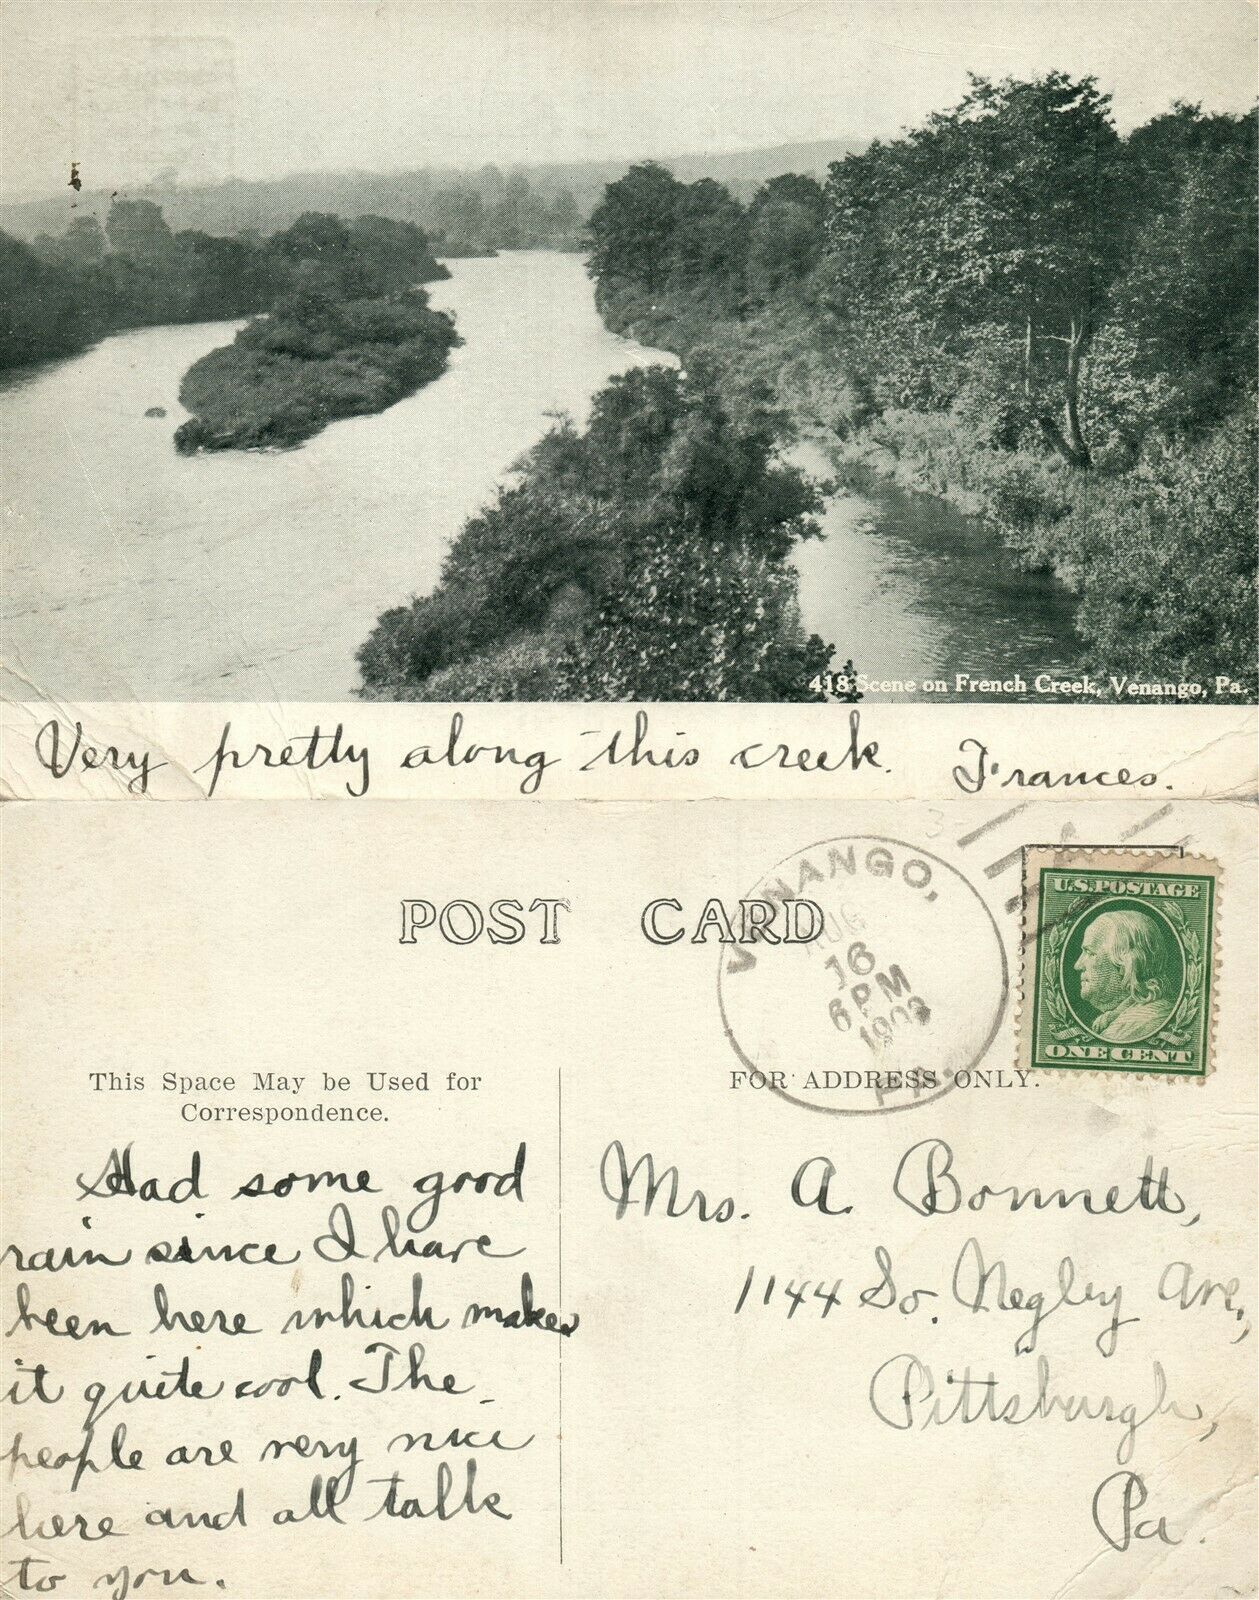 418 Scene on French Creek, Venango, Pa.
Very pretty along this creek. Frances.
VENANGO,
AUG
16
6 PM
1909
PA.
U.S. POSTAGE
ONE CENT
POST CARD
This Space May be Used for
Correspondence.
FOR ADDRESS ONLY.
Had some good
rain since I have
been here which makes
it quite cool. The
people are very nice
here and all talk
to you.
Mrs. A. Bonnett,
1144 So. Negley Ave.,
Pittsburgh,
Pa.